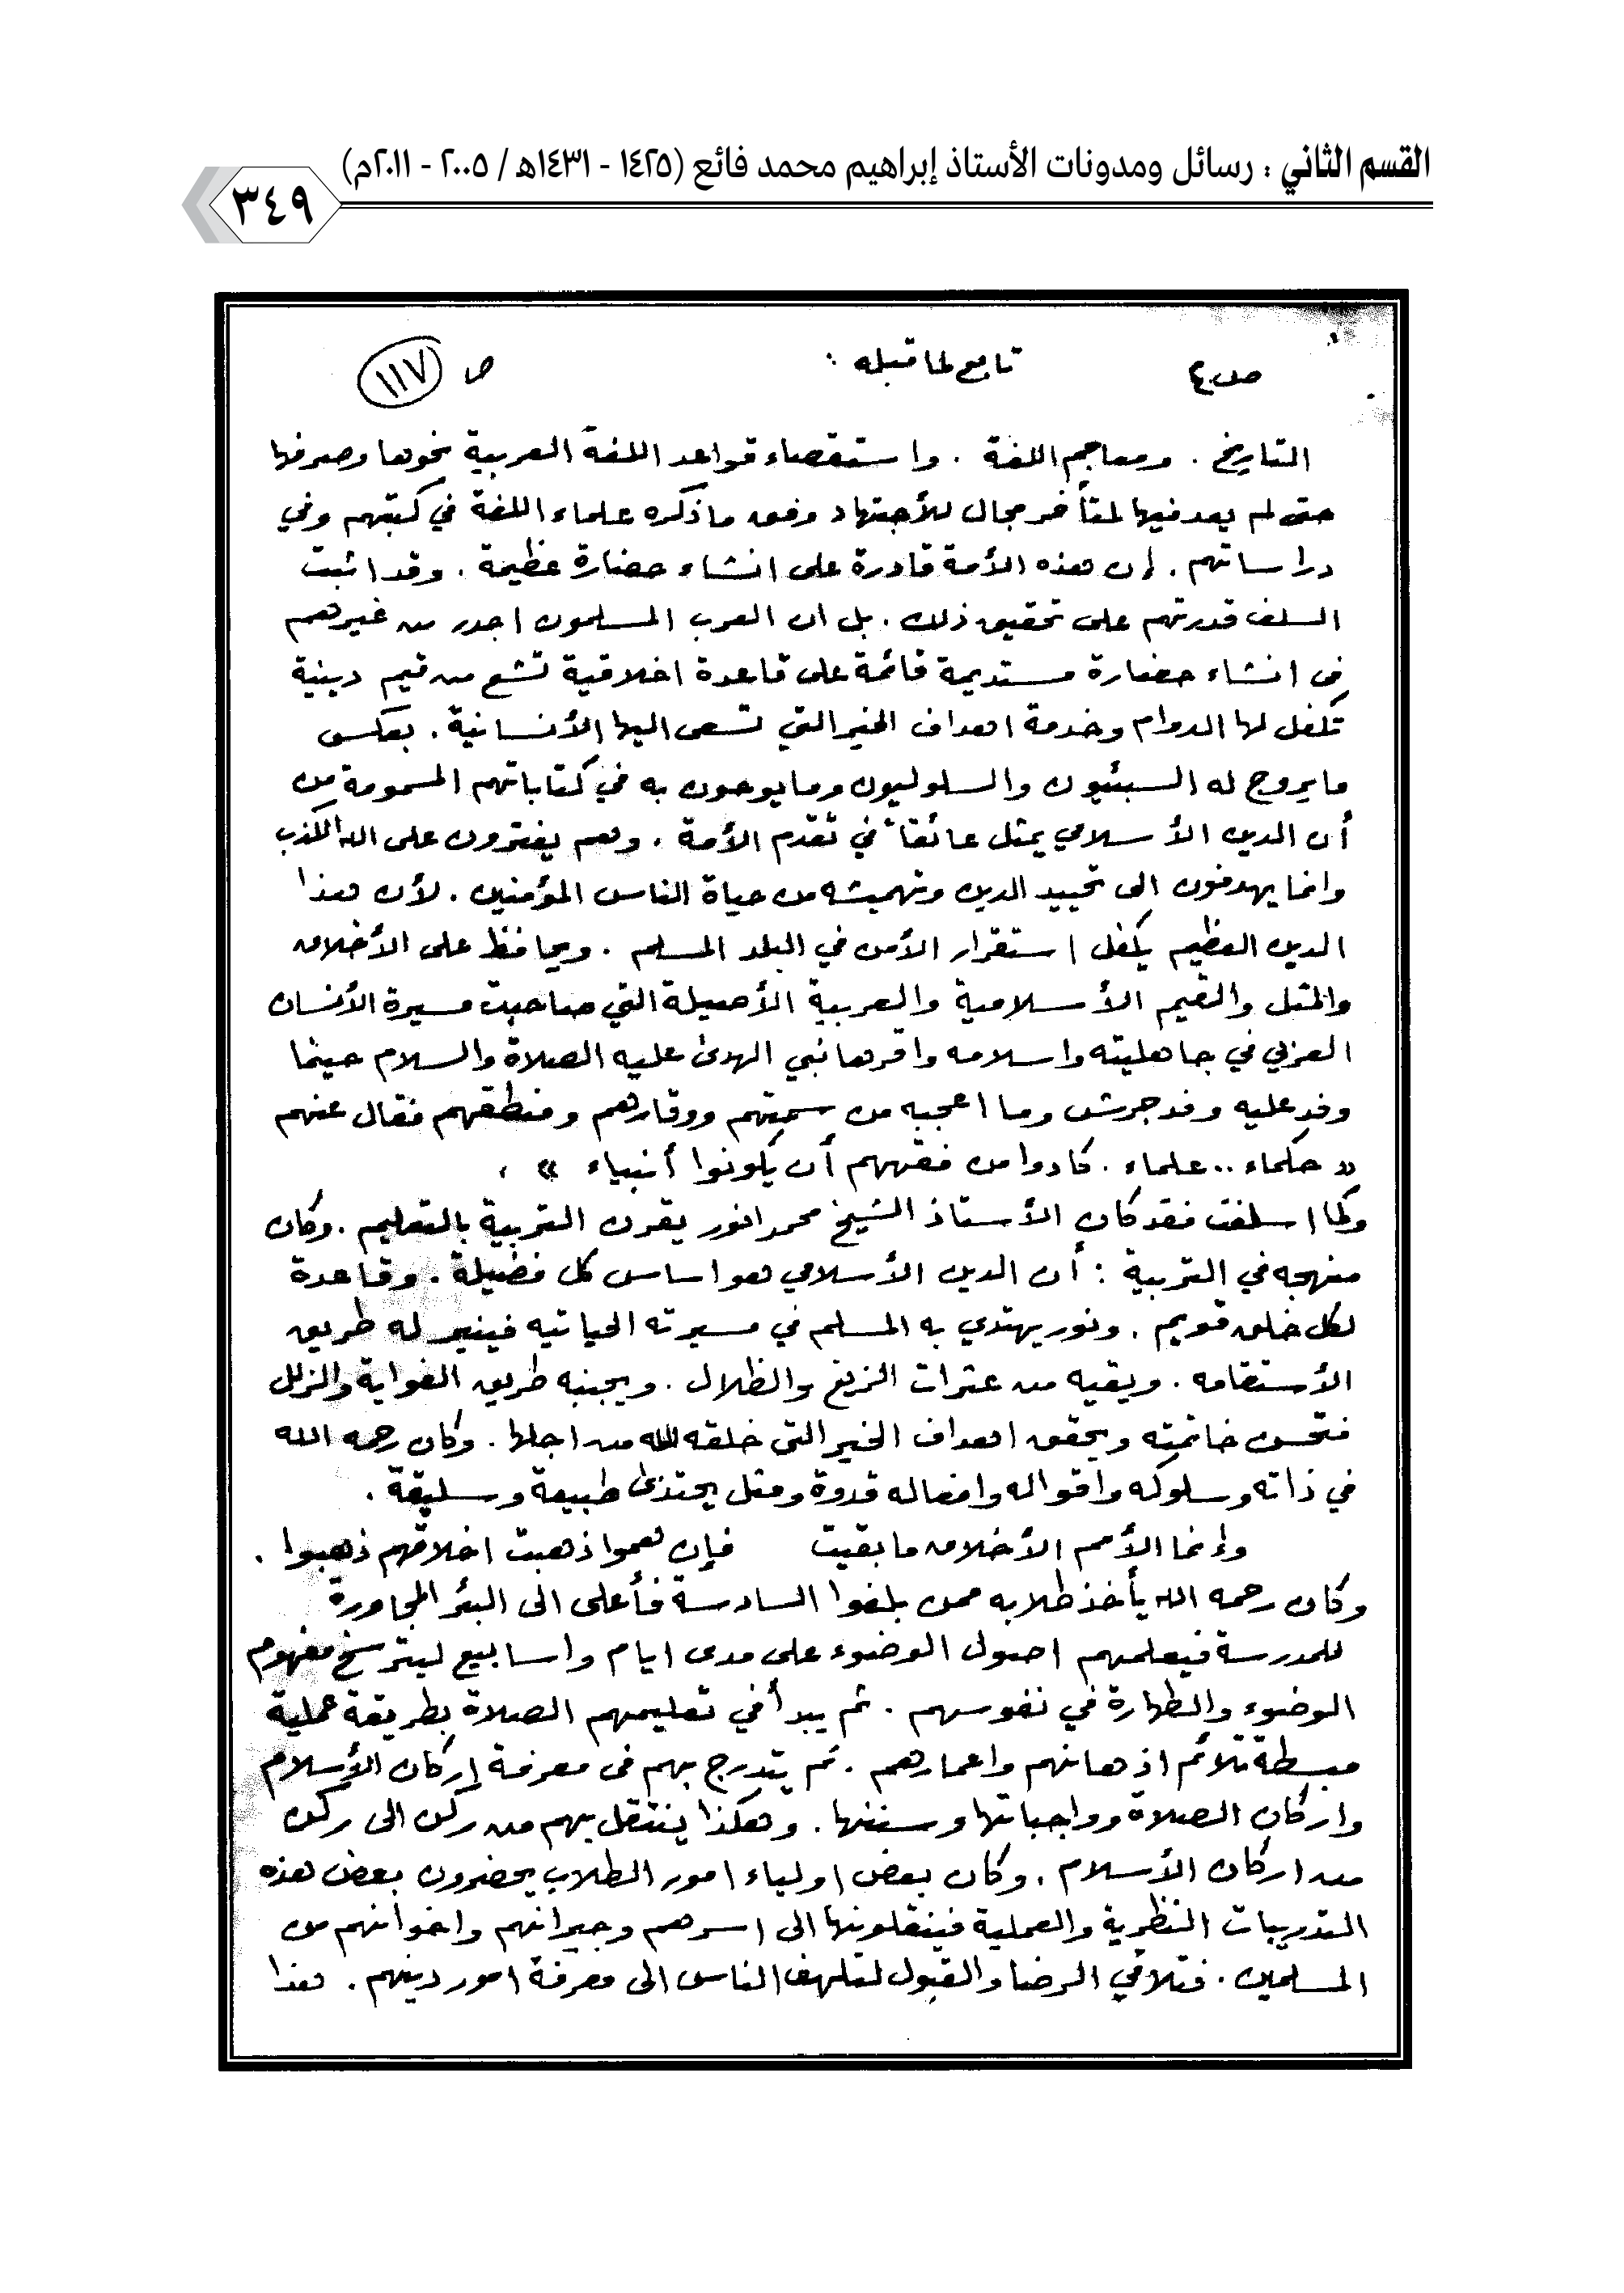 القسم الثاني : رسائل ومدونات الأستاذ إبراهيم محمد فائع (١٤٢٥ - ١٤٣١هـ / ٢٠٠٥ - ٢٠١١م)
٣٤٩
ص ٤ تابع لما قبله : ص ١١٧
التاريخ . ومعاجم اللغة . واستقصاء قواعد اللغة العربية نحوها وصرفها
حتى لم يعد فيها لمتأخر مجال للأجتهاد وفق ما ذكره علماء اللغة في كتبهم وفي
دراساتهم . إن هذه الأمة قادرة على انشاء حضارة عظيمة . وقد اثبت
السلف قدرتهم على تحقيق ذلك . بل ان العرب المسلمون اجدر من غيرهم
في انشاء حضارة مستديمة قائمة على قاعدة اخلاقية تشع من قيم دينية
تكفل لها الدوام وخدمة اهداف الخير التي تسعى اليها الأنسانية . بعكس
ما يروج له السبئيون والسلوليون وما يوحون به في كتاباتهم المسمومة من
أن الدين الأسلامي يمثل عائقاً في تقدم الأمة . وهم يفترون على الله الكذب
وانما يهدفون الى تحييد الدين وتهميشه من حياة الناس المؤمنين . لأن هذا
الدين العظيم يكفل استقرار الأمن في البلد المسلم . ويحافظ على الأخلاق
والمثل والقيم الأسلامية والعربية الأصيلة التي صاحبت مسيرة الأنسان
العربي في جاهليته واسلامه واقرها نبي الهدى عليه الصلاة والسلام حينما
وفد عليه وفد جرش وما اعجبه من سمتهم ووقارهم ومنطقهم فقال عنهم
« حكماء .. علماء . كادوا من فقههم أن يكونوا أنبياء » .
وكما اسلفت فقد كان الأستاذ الشيخ محمد انور يقرن التربية بالتعليم . وكان
منهجه في التربية : أن الدين الأسلامي هو اساس كل فضيلة . وقاعدة
لكل خلق قويم . ونور يهتدي به المسلم في مسيرته الحياتيه فينير له طريق
الأستقامه . ويقيه من عثرات الزيغ والظلال . ويجنبه طريق الغواية والزلل
فتحسن خاتمته ويحقق اهداف الخير التي خلقه الله من اجلها . وكان رحمه الله
في ذاته وسلوكه واقواله وافعاله قدوة ومثل يحتذى طبيعة وسليقة .
وإنما الأمم الأخلاق ما بقيت فإن هموا ذهبت اخلاقهم ذهبوا .
وكان رحمه الله يأخذ طلابه ممن بلغوا السادسة فأعلى الى البئر المجاورة
للمدرسة فيعلمهم اصول الوضوء على مدى ايام واسابيع ليترسخ مفهوم
الوضوء والطهارة في نفوسهم . ثم يبدأ في تعليمهم الصلاة بطريقة عملية
مبسطة تلائم اذهانهم واعمارهم . ثم يتدرج بهم في معرفة إركان الأسلام
واركان الصلاة وواجباتها وسننها . وهكذا ينتقل بهم من ركن الى ركن
من اركان الأسلام . وكان بعض اولياء امور الطلاب يحضرون بعض هذه
التدريبات النظرية والعملية فينقلونها الى اسرهم وجيرانهم واخوانهم من
المسلمين . فتلاقي الرضا والقبول لتلهف الناس الى معرفة امور دينهم . هذا